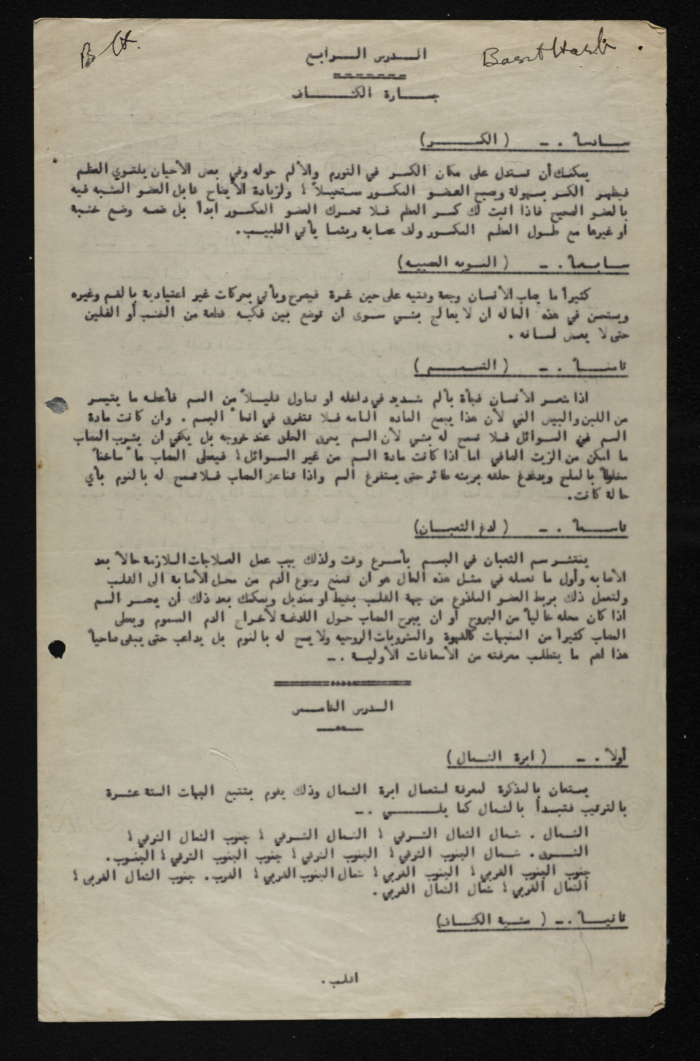 B H.
Basit Harb
الـدرس الـرابـع
جـدارة الكشـاف
سادساً . - ( الكـسـر )
يمكنك أن تستدل على مكان الكسر في التورم والألم حوله وفي بعض الأحيان يلتوي العظم
فيظهر الكسر بسهولة ويصبح العضو المكسور مستحيلاً ؛ ولزيادة الأيضاح قابل العضو المشبه فيه
بالعضو الصحيح فاذا اثبت لك كسر العظم فلا تحرك العضو المكسور ابداً بل ضعه وضع خشبة
أو غيرها مع طول العظم المكسور ولف عصابة ريثما يأتي الطبيب .
سابعاً . - ( النوبه العصبيه )
كثيراً ما يصاب الأنسان وجعة وقتيه على حين غرة فيصرخ ويأتي بحركات غير اعتيادية بالفم وغيره
ويستحسن في هذه الحاله ان لا يعالج بشي سوى ان توضع بين فكيه قطعة من الخشب أو الفلين
حتى لا يعض لسانه .
ثامناً . - ( التسمـم )
اذا شعر الأنسان فجأة بألم شديد في داخله او تناول قليلاً من السم فأعطه ما يتيسر
من اللبن والبيض الني لأن هذا يجمع الماده السامه فلا تتفرق في انحاء الجسم . وان كانت مادة
السم في السوائل فلا تسمح له بشي لأن السم يحرق الحلق عند خروجه بل يكفي ان يشرب المصاب
ما امكن من الزيت الصافي اما اذا كانت مادة السم من غير السوائل ؛ فيعطى المصاب ماءً ساخناً
مخلوطاً بالملح ويدغدغ حلقه بريشة طائر حتى يستفرغ السم واذا تناعس المصاب فلا تسمح له بالنوم بأي
حالة كانت .
تاسعاً . - ( لدغ الثعبـان )
ينتشر سم الثعبان في الجسم بأسرع وقت ولذلك يجب عمل العلاجات اللازمة حالاً بعد
الأصابه وأول ما تعمله في مثل هذه الحال هو ان تمنع رجوع الدم من محل الأصابة الى القلب
ولتعمل ذلك بربط العضو الملدوغ من جهة القلب بخيط او منديل ويمكنك بعد ذلك أن يمصر السم
اذا كان محله خالياً من الجروح أو ان يجرح المصاب حول اللدغة لأخراج الدم المسموم ويعطى
المصاب كثيراً من المنبهات كالقهوة والمشروبات الروحيه ولا يسمح له بالنوم بل يداعب حتى يبقى صاحياً
هذا اهم ما يتطلب معرفته من الأسعافات الأولية . -
الـدرس الخامس
أولاً . - ( ابرة الشمال )
يستعان بالمذكرة لمعرفة استعمال ابرة الشمال وذلك يقوم بتتبع الجهات الستة عشرة
بالترتيب فتبدأ بالشمال كما يلـي . -
الشمال . شمال الشمال الشرقي ؛ الشمال الشرقي ؛ جنوب الشمال الشرقي ؛
الشرق . شمال الجنوب الشرقي ؛ الجنوب الشرقي ؛ جنوب الجنوب الشرقي ؛ الجنوب .
جنوب الجنوب الغربي ؛ الجنوب الغربي ؛ شمال الجنوب الغربي ؛ الغرب . جنوب الشمال الغربي ؛
الشمال الغربي ؛ شمال الشمال الغربي .
ثانياً . - ( مشية الكشاف )
اقلب .